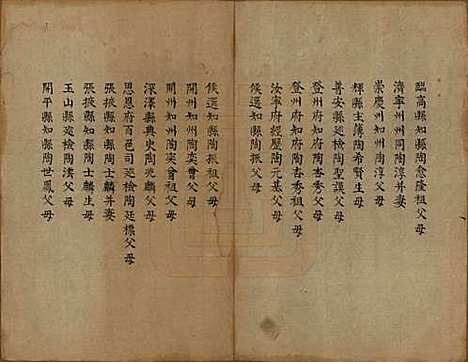 臨高縣知縣陶愈隆祖父母
濟寧州州同陶淳并妻
崇慶州知州陶淳父母
輝縣主簿陶希賢生母
普安縣巡檢陶聖護父母
登州府知府陶杏秀父母
登州府知府陶杏秀祖父母
汝寧府經歷陶元基父母
候選知縣陶振父母
候選知縣陶振祖父母
開州知州陶奕曾父母
開州知州陶奕曾祖父母
深澤縣典史陶兆麟父母
思恩府百邑司巡檢陶廷標父母
張掖縣知縣陶士麟并妻
張掖縣知縣陶士麟生母
玉山縣巡檢陶濤父母
開平縣知縣陶世鳳父母